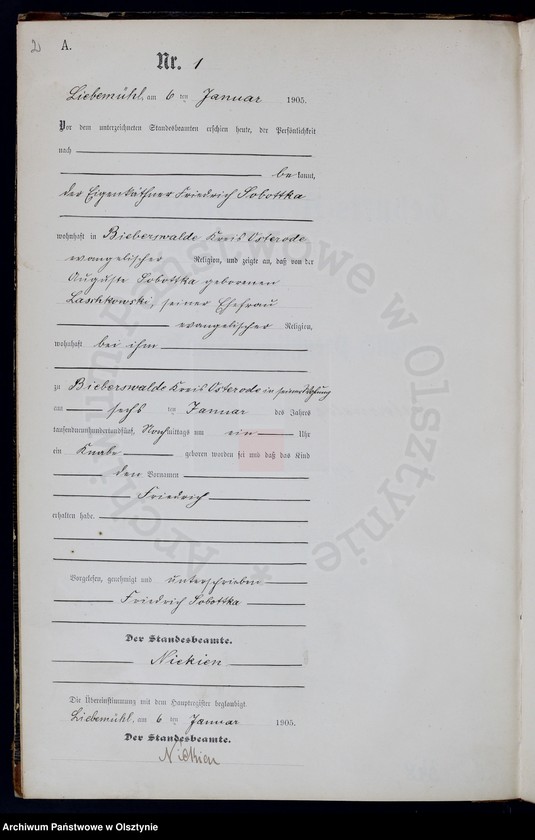 2
A.
Nr. 1
Liebemühl, am 6 ten Januar 1905.
Vor dem unterzeichneten Standesbeamten erschien heute, der Persönlichkeit
nach
be kannt,
der Eigenkäthner Friedrich Sobottka
wohnhaft in Bieberswalde Kreis Osterode
evangelischer Religion, und zeigte an, daß von der
Auguste Sobottka geborenen
Laschkowski, seiner Ehefrau
evangelischer Religion,
wohnhaft bei ihm
zu Bieberswalde Kreis Osterode in seiner Wohnung
am sechs ten Januar des Jahres
tausendneunhundertundfünf, Nachmittags um ein Uhr
ein Knabe geboren worden sei und daß das Kind
den Vornamen
Friedrich
erhalten habe.
Vorgelesen, genehmigt und unterschrieben
Friedrich Sobottka
Der Standesbeamte.
Nickien
Die Übereinstimmung mit dem Hauptregister beglaubigt.
Liebemühl, am 6 ten Januar 1905.
Der Standesbeamte.
Nickien
Archiwum Państwowe w Olsztynie
Archiwum Państwowe w Olsztynie *